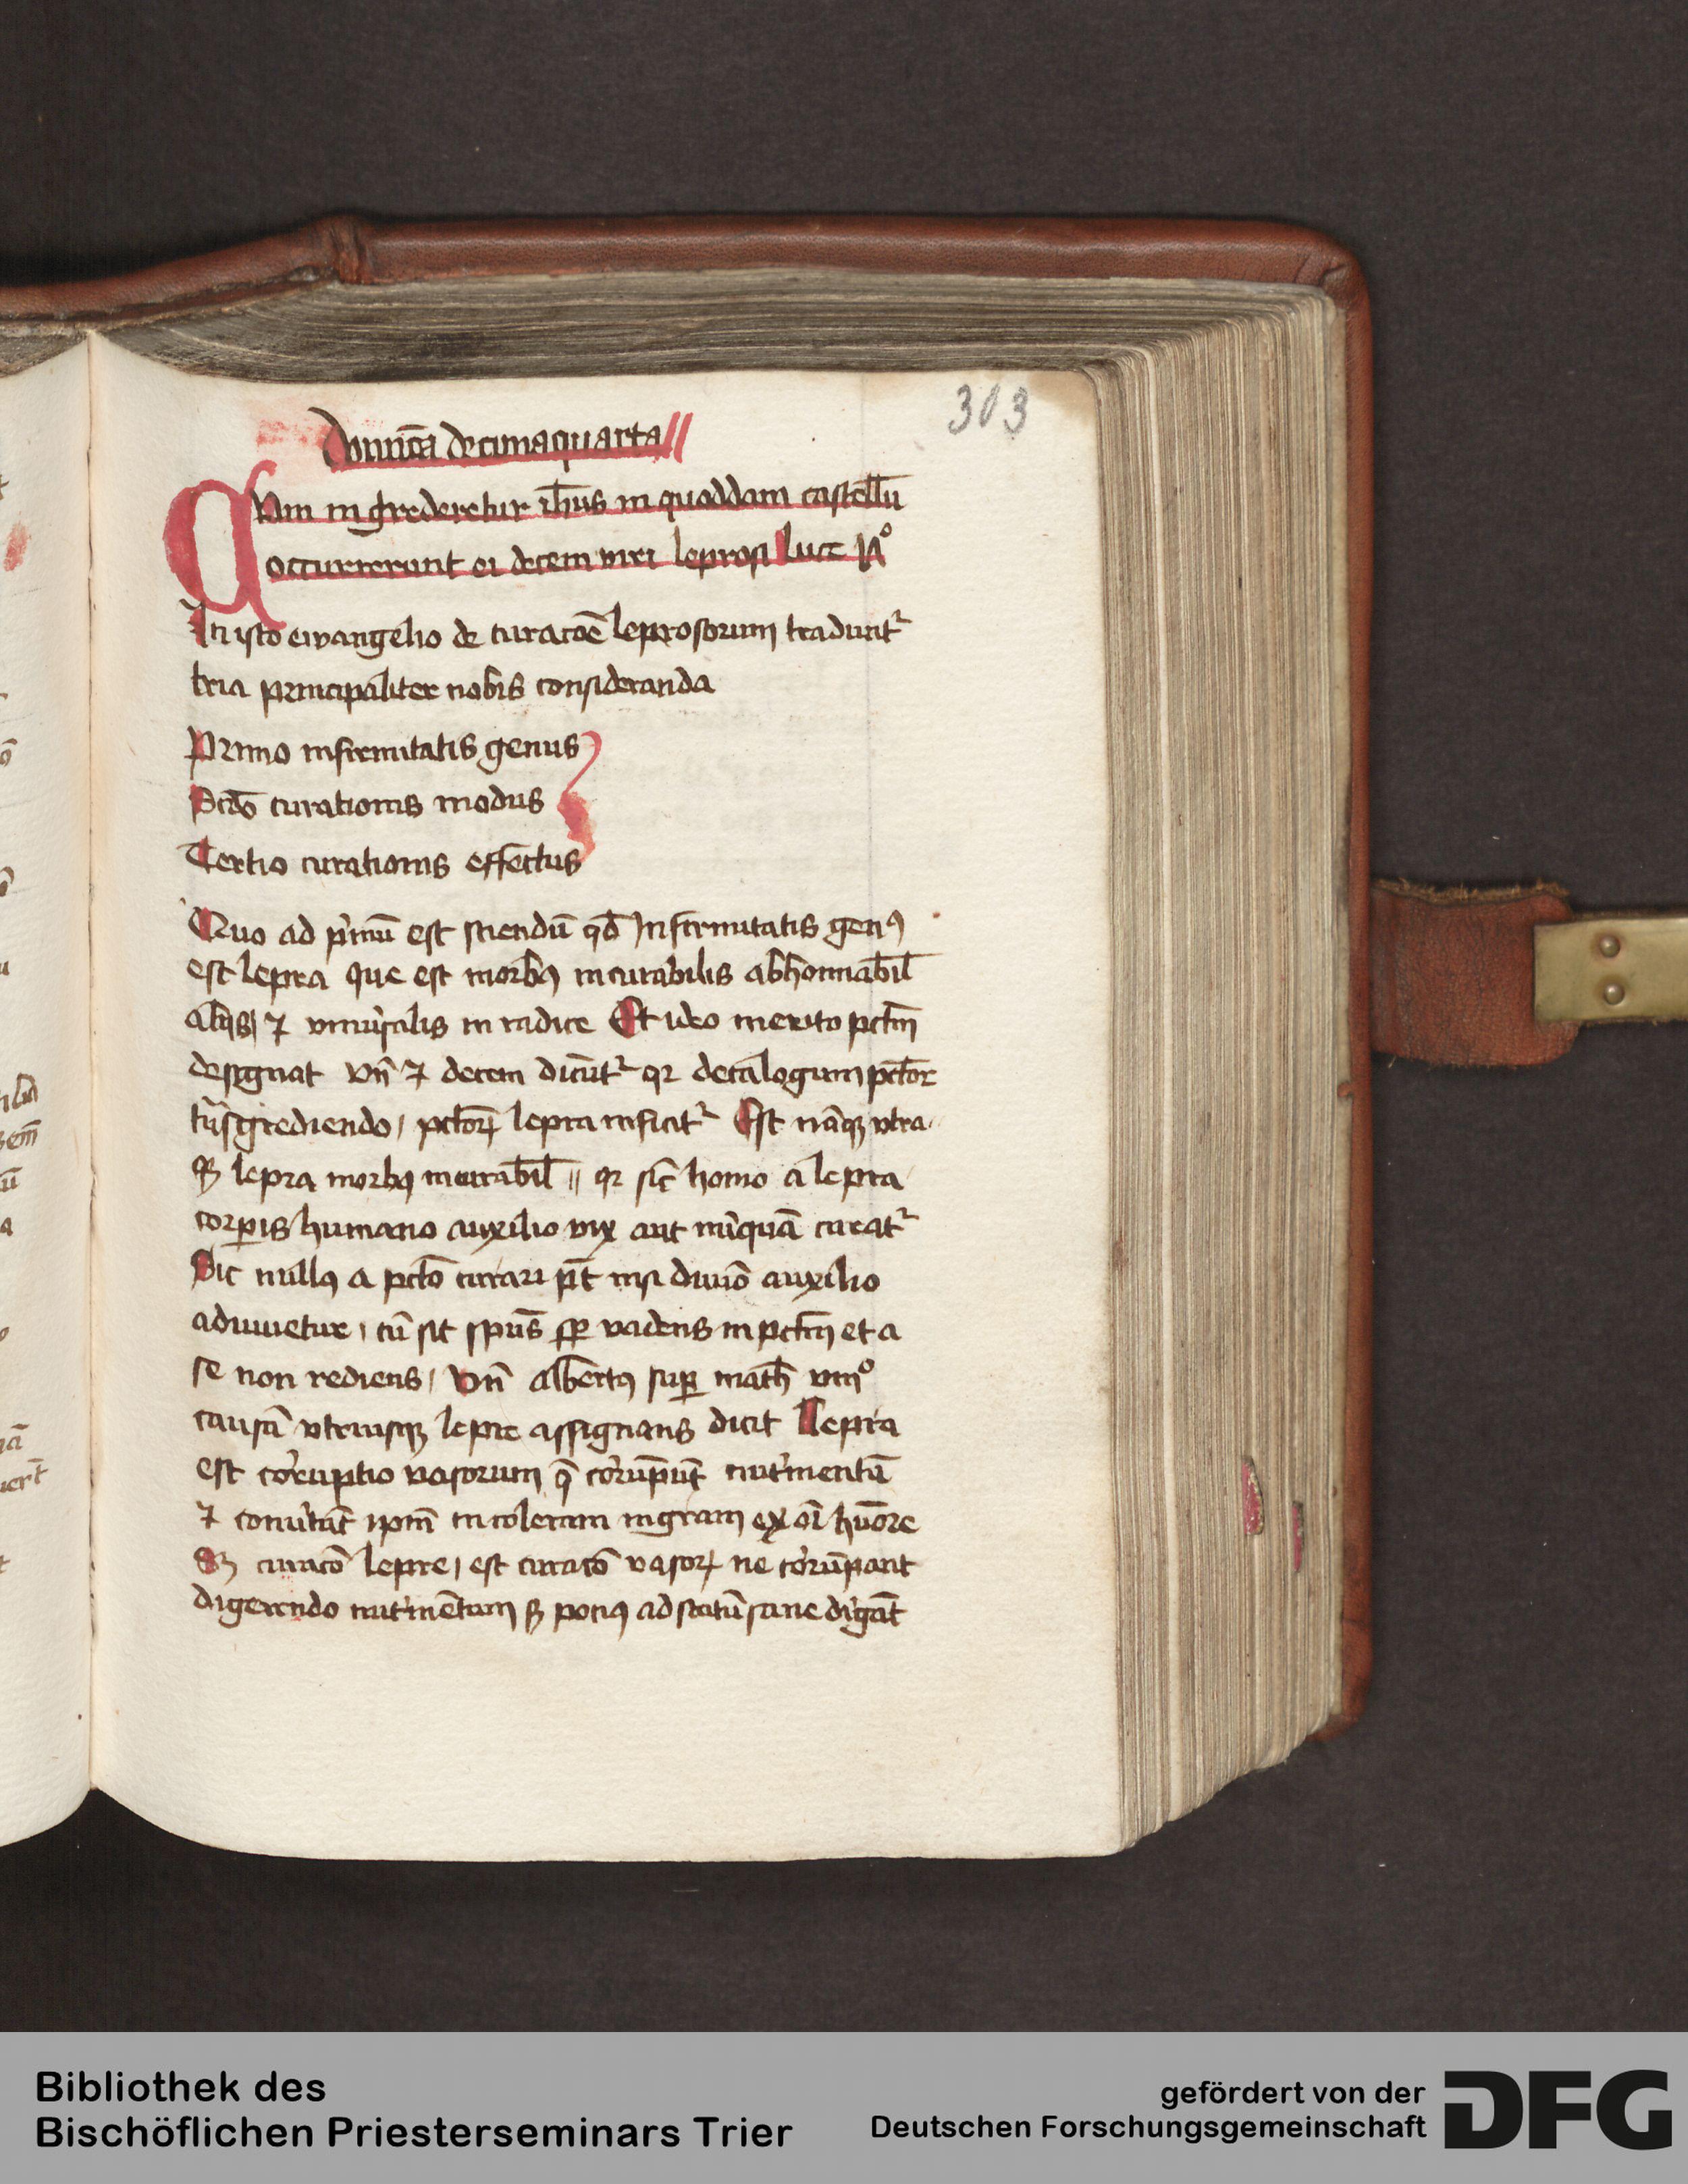 303
Dominica͞ decimaquarta //
CUm ingrederetur ih̅us in quoddam castellu̅
occurrerunt ei decem viri leprosi Luce
In isto ewangelio de curaco̅e leprosorum tradunt᷑
tria principaliter nobis consideranda
Primo infirmitatis genus
Scd̅o curationis modus
Tertio curationis effectus
Quo ad p͛imu̅ est sciendu̅ qd̅ Infirmitatis genꝯ
est lepra que est morbꝯ incurabilis abho̅inabil̅
et vniu͛salis in radice Et ideo merito pctm̅
designat Vn̅ ⁊ decem dicu̅t᷑ qꝛ decalogum
t̅nsgrediendo / pctoꝝ lepra inficit᷑ Est na̅qꝫ vtra
qꝫ lepra morbꝯ incurabil̅ // qꝛ sic̅ homo a lepra
corꝑis humano auxilio vix aut nu̅qua̅ curat᷑
Sic nullꝯ a pcto̅ curari pt̅ nisi diuio̅ auxilio
adiuuetur / cu̅ sit spu̅s vadens in pctm̅ et a
se non rediens / Vn̅ Albertꝯ suꝑ math̅ viiiº
causa̅ vtriusqꝫ lepre assignans dicit Lepra
est cor͛uptio vasorum q̅ cor͛u̅pu̅t nut͛imentu̅
⁊ conu͛tu̅t ip̅m in coleram nigram ex oi̅ hu̅ore
Sꝫ curaco̅ lepre / est curaco̅ vasoꝝ ne cor͛u̅pant
digerendo nut͛ime̅tum sꝫ pociꝯ ad statu̅ sane dig͛a̅t
Bibliothek des
Bischöflichen Priesterseminars Trier
gefördert von der
Deutschen Forschungsgemeinschaft
DFG